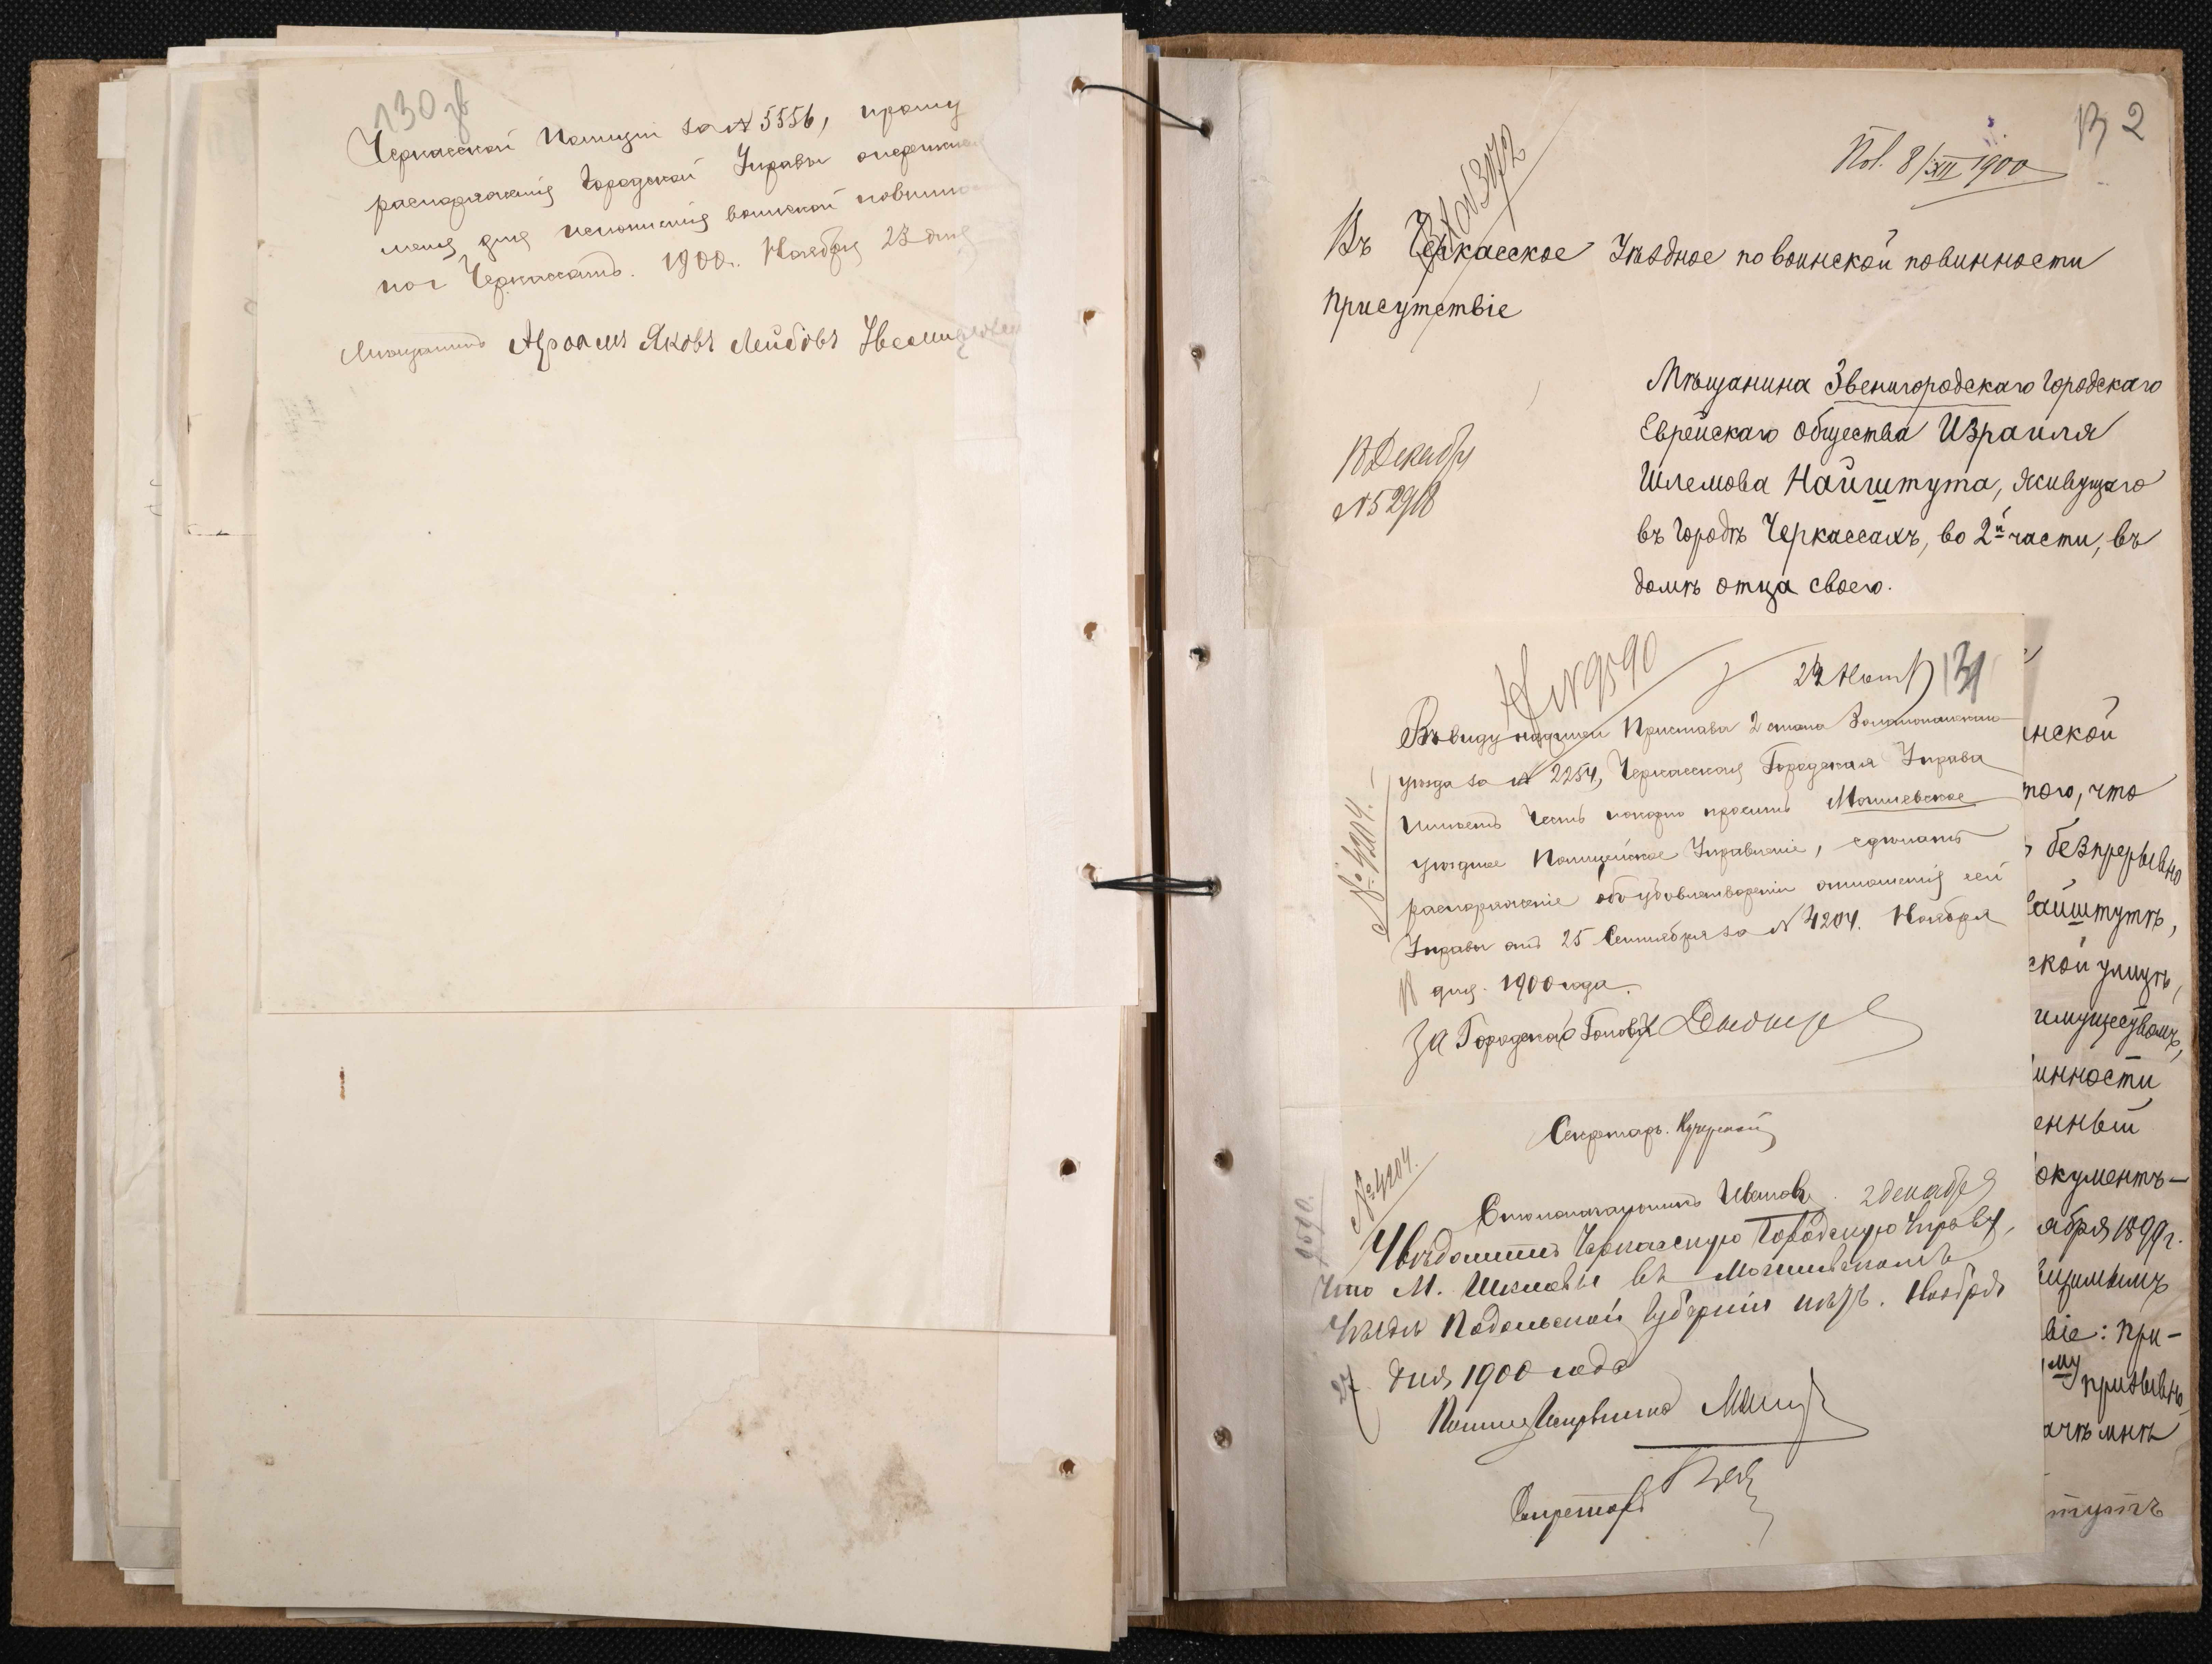 130 об
Черкасской Полиціи за № 5556, прошу
распоряженія Городской Управы
меня для исполненія воинской
Черкассахъ. 1900 г. Ноября 23 дня
Мѣщанинъ Абрамъ Яковъ Лейбовъ
132
Пол. 8/XII 1900
№ 3072
Въ Черкасское Уѣздное по воинской повинности
присутствіе
Мѣщанина Звенигородскаго городскаго
Еврейскаго общества Израиля
Шлемова Найштута, живущаго
въ городѣ Черкассахъ, во 2й части, въ
домѣ отца своего.
Декабря
№ 52918
№ 9590
131
Въ виду надписи Пристава 2 стана Золотоношскаго
уѣзда за № 2254, Черкасская Городская Управа
имѣетъ честь покорно просить Могилевское
уѣздное Полицейское Управленіе, сдѣлать
распоряженіе объ удовлетвореніи отношенія сей
Управы отъ 25 Сентября за № 4204. Ноября
дня 1900 года.
№ 4204.
За Городского Голову
Секретарь
№ 4204.
9590.
Столоначальникъ Ивановъ 2 декабря
Увѣдомить Черкасскую Городскую Управу,
что М. Шкловы въ Могилевскомъ
Уѣздѣ Подольской губерніи нѣтъ. Ноября
27 дня 1900 года
Секретарь
инской
того, что
безпрерывно
айштутъ,
ской улицѣ,
имуществомъ,
инности
енный
окументъ—
ября 1899 г.
віе: при-
му призывно
ачѣ мнѣ
тутъ